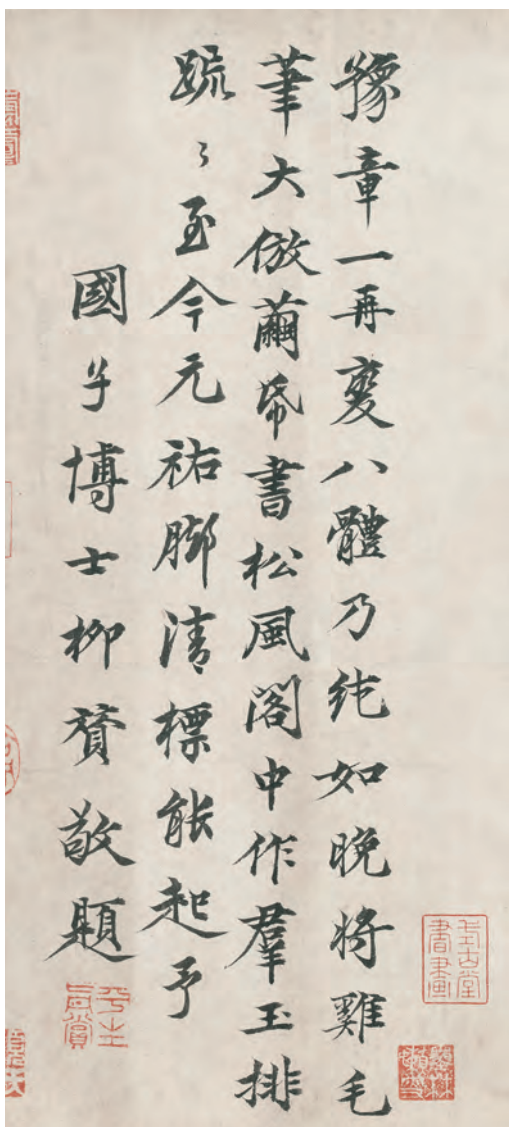 豫章一再變八體乃純如晚將雞毛
筆大倣繭帋書松風閣中作羣玉排
疏〻至今元祐腳清標能起予
國子博士柳贇敬題